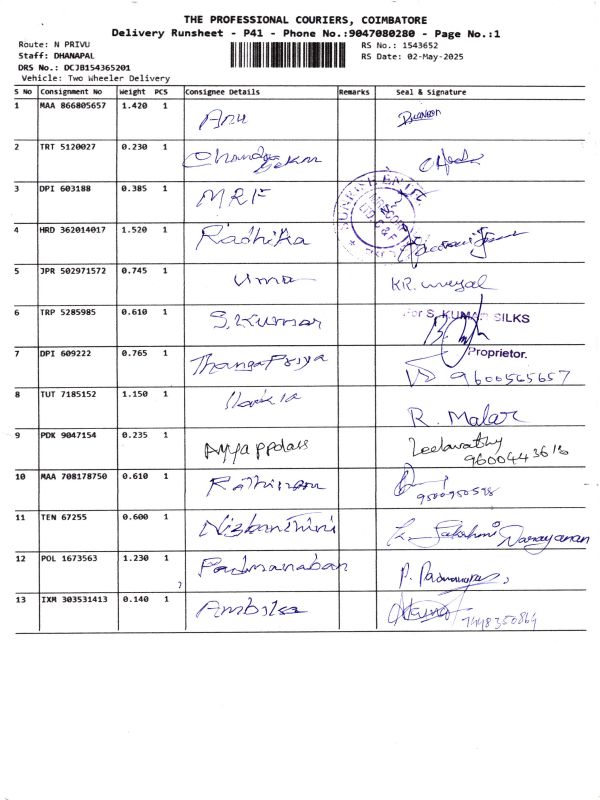 THE PROFESSIONAL COURIERS, COIMBATORE
Delivery Runsheet - P41 - Phone No.:9047080280 - Page No.:1
Route: N PRIVU
RS No.: 1543652
Staff: DHANAPAL
RS Date: 02-May-2025
DRS No.: DCJB154365201
Vehicle: Two Wheeler Delivery
S No Consignment No Weight PCS Consignee Details Remarks Seal & Signature
1 MAA 866805657 1.420 1 Anu
2 TRT 5120027 0.230 1 Chandra Sekar
3 DPI 603188 0.385 1 MRF
4 HRD 362014017 1.520 1 Radhika
5 JPR 502971572 0.745 1 Uma KR.
6 TRP 5285985 0.610 1 S.Kumar For S. KUMAR SILKS
Proprietor.
7 DPI 609222 0.765 1 ThangaPriya 9600565657
8 TUT 7185152 1.150 1 R. Malar
9 PDK 9047154 0.235 1 Ayyappdass Leelavathy
9600443618
10 MAA 708178750 0.610 1
11 TEN 67255 0.600 1 Nishanthini Lakshmi Narayanan
12 POL 1673563 1.230 1 Padmanaban P.
13 IXM 303531413 0.140 1 Ambika 7448350864